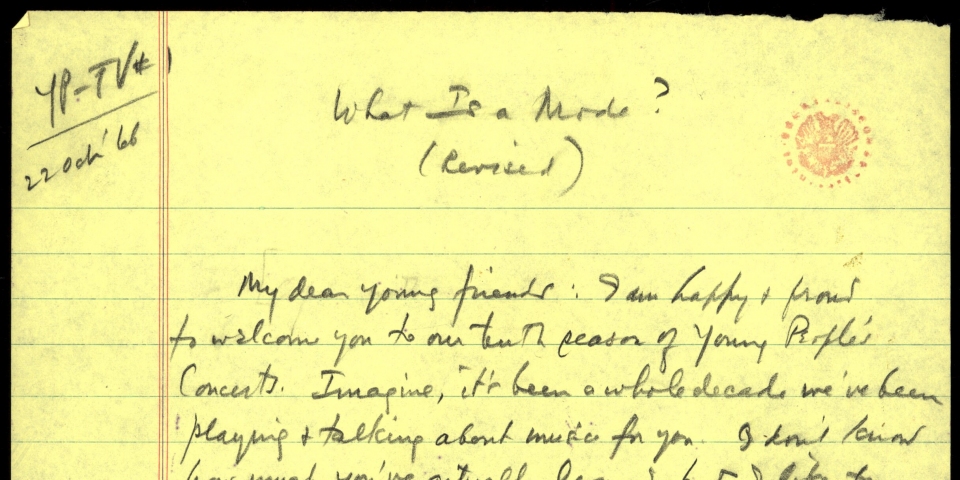 YP-TV#1
22 Oct '66
What Is a Mode?
(Revised)
My dear young friends: I am happy & proud
to welcome you to our tenth season of Young People's
Concerts. Imagine, it's been a whole decade we've been
playing & talking about music for you. I don't know
how much you've actually I like to